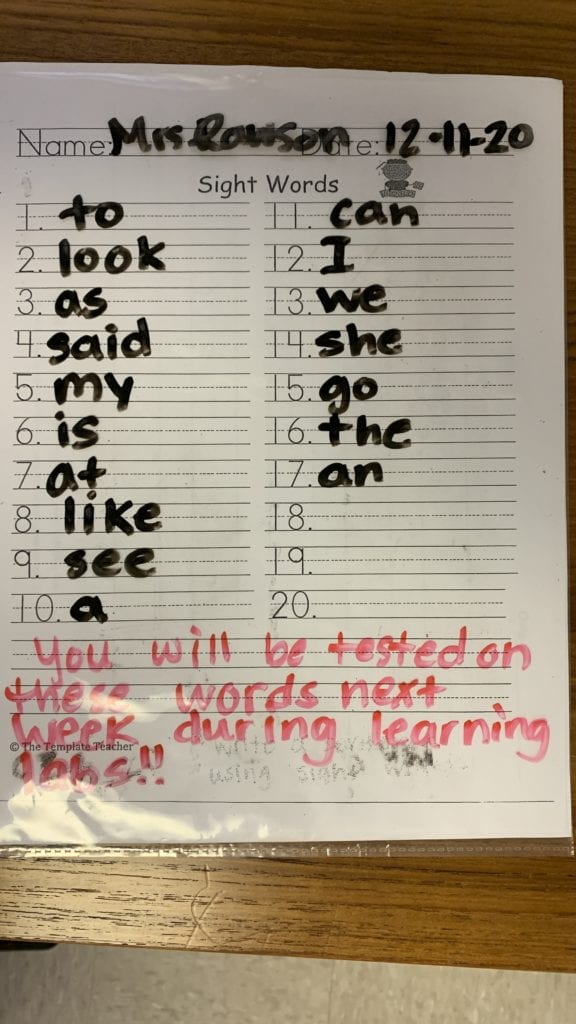 Name: Mrs. Rawson Date: 12-11-20
Sight Words
1. to
2. look
3. as
4. said
5. my
6. is
7. at
8. like
9. see
10. a
11. can
12. I
13. we
14. she
15. go
16. the
17. an
18.
19.
20.
You will be tested on
these words next
week during learning
labs!!
© The Template Teacher
write a
using sight